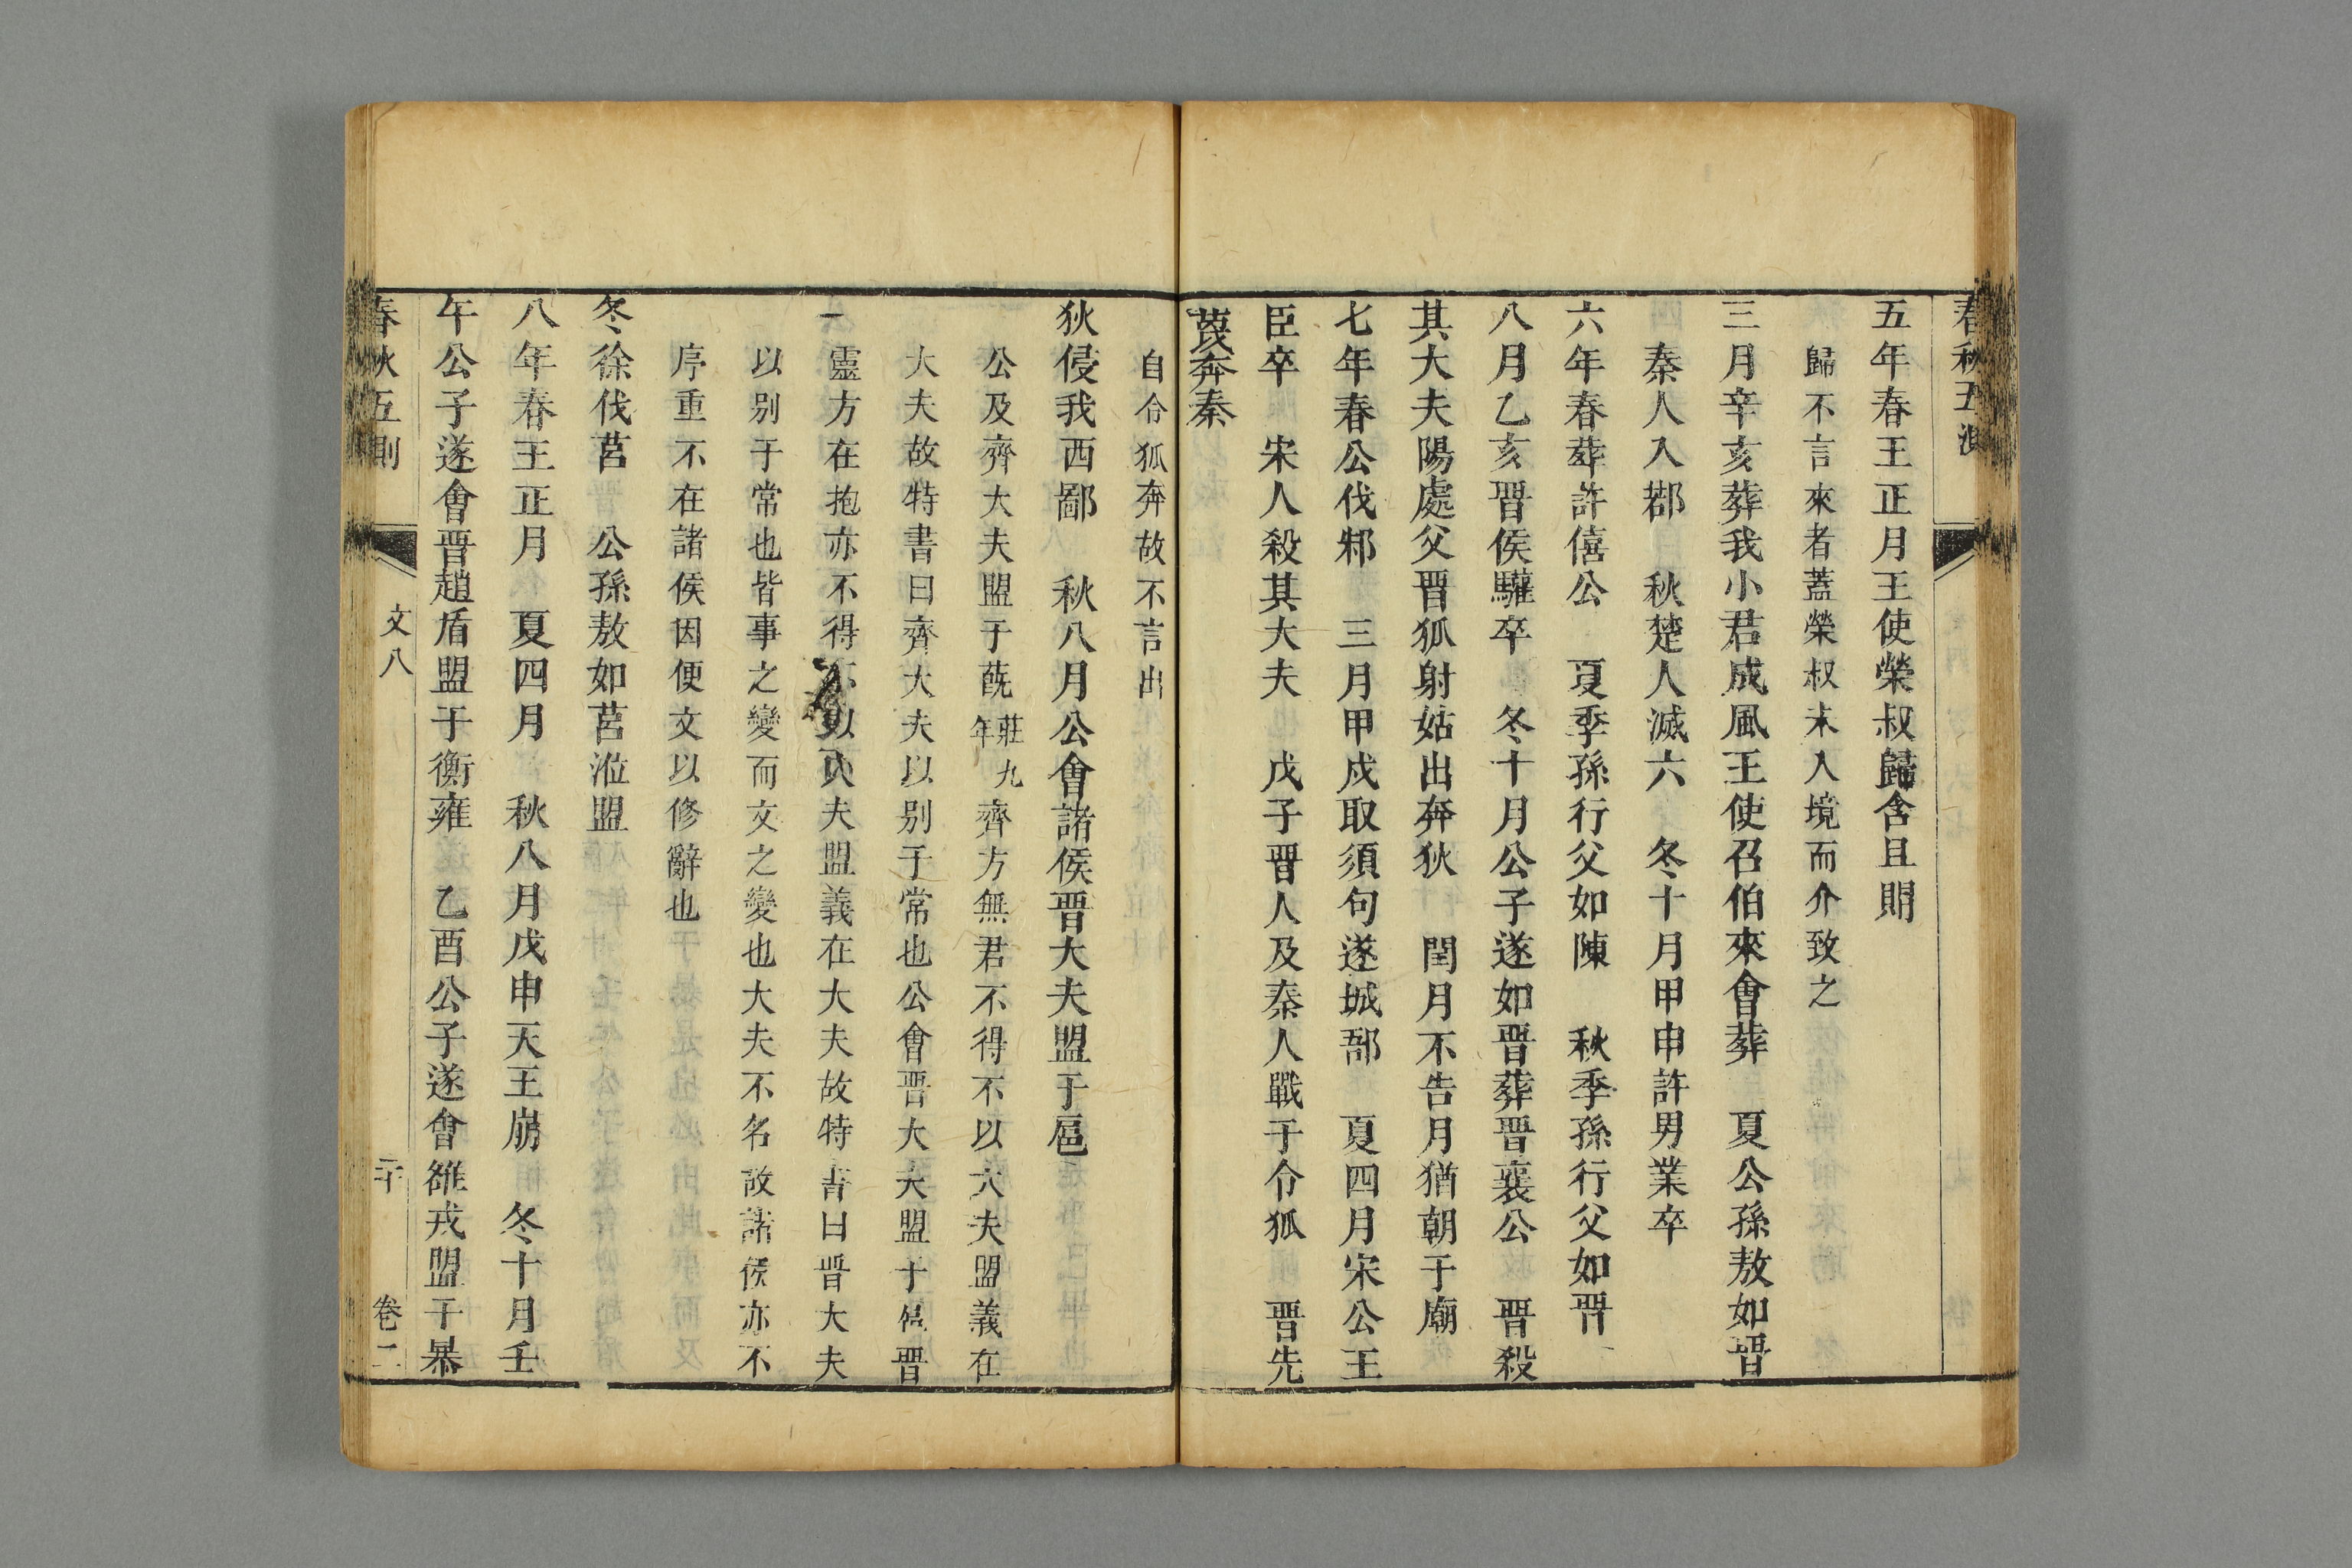 春秋五測
五年春王正月王使榮叔歸含且賵
歸不言來者蓋榮叔未入境而介致之
三月辛亥葬我小君成風王使召伯來會葬　夏公孫敖如晋
秦人入鄀　秋楚人滅六　冬十月甲申許男業卒
六年春葬許僖公　夏季孫行父如陳　秋季孫行父如晋
八月乙亥晋侯驩卒　冬十月公子遂如晋葬晋襄公　晋殺
其大夫陽處父晋狐射姑出奔狄　閏月不告月猶朝于廟
七年春公伐邾　三月甲戌取須句遂城郚　夏四月宋公王
臣卒　宋人殺其大夫　戊子晋人及秦人戰于令狐　晋先
蔑奔秦
自令狐奔故不言出
狄侵我西鄙　秋八月公會諸侯晋大夫盟于扈
公及齊大夫盟于蔇莊九年齊方無君不得不以大夫盟義在
大夫故特書曰齊大夫以别于常也公會晋大夫盟于扈晋
靈方在抱亦不得不以大夫盟義在大夫故特書曰晋大夫
以别于常也皆事之變而文之變也大夫不名故諸侯亦不
序重不在諸侯因便文以修辭也
冬徐伐莒　公孫敖如莒涖盟
八年春王正月　夏四月　秋八月戊申天王崩　冬十月壬
午公子遂會晋趙盾盟于衡雍　乙酉公子遂會雒戎盟于暴
春秋五測　文八　二十　卷二